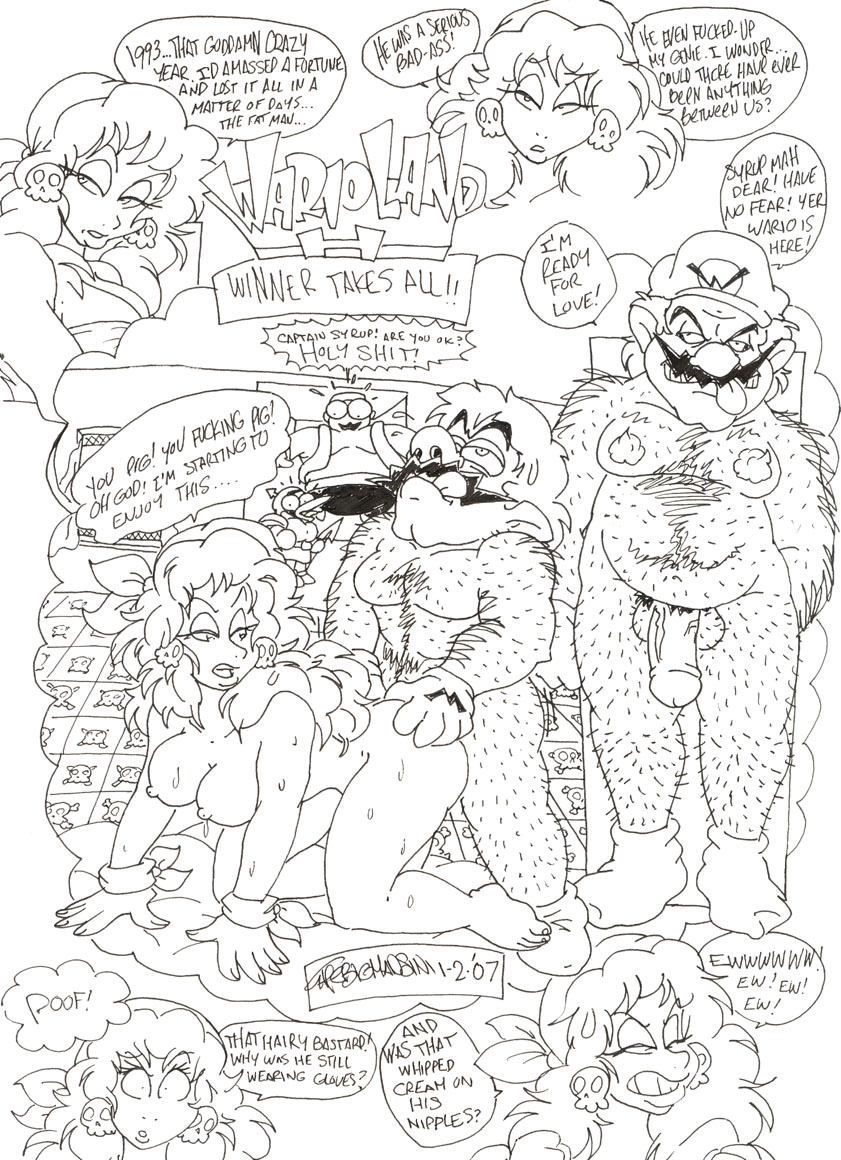 1993...THAT GODDAMN CRAZY
YEAR. I'D AMASSED A FORTUNE
AND LOST IT ALL IN A
MATTER OF DAYS...
THE FAT MAN...
HE WAS A SERIOUS
BAD-ASS!
HE EVEN FUCKED-UP
MY GENIE. I WONDER...
COULD THERE HAVE EVER
BEEN ANYTHING
BETWEEN US?
WARIO LAND
WINNER TAKES ALL!!
SYRUP MAH
DEAR! HAVE
NO FEAR! YER
WARIO IS
HERE!
I'M
READY
FOR
LOVE!
CAPTAIN SYRUP! ARE YOU OK?
HOLY SHIT!
YOU PIG! YOU FUCKING PIG!
OH GOD! I'M STARTING TO
ENJOY THIS....
1-2-'07
POOF!
THAT HAIRY BASTARD!
WHY WAS HE STILL
WEARING GLOVES?
AND
WAS THAT
WHIPPED
CREAM ON
HIS
NIPPLES?
EWWWWWW!
EW! EW!
EW!